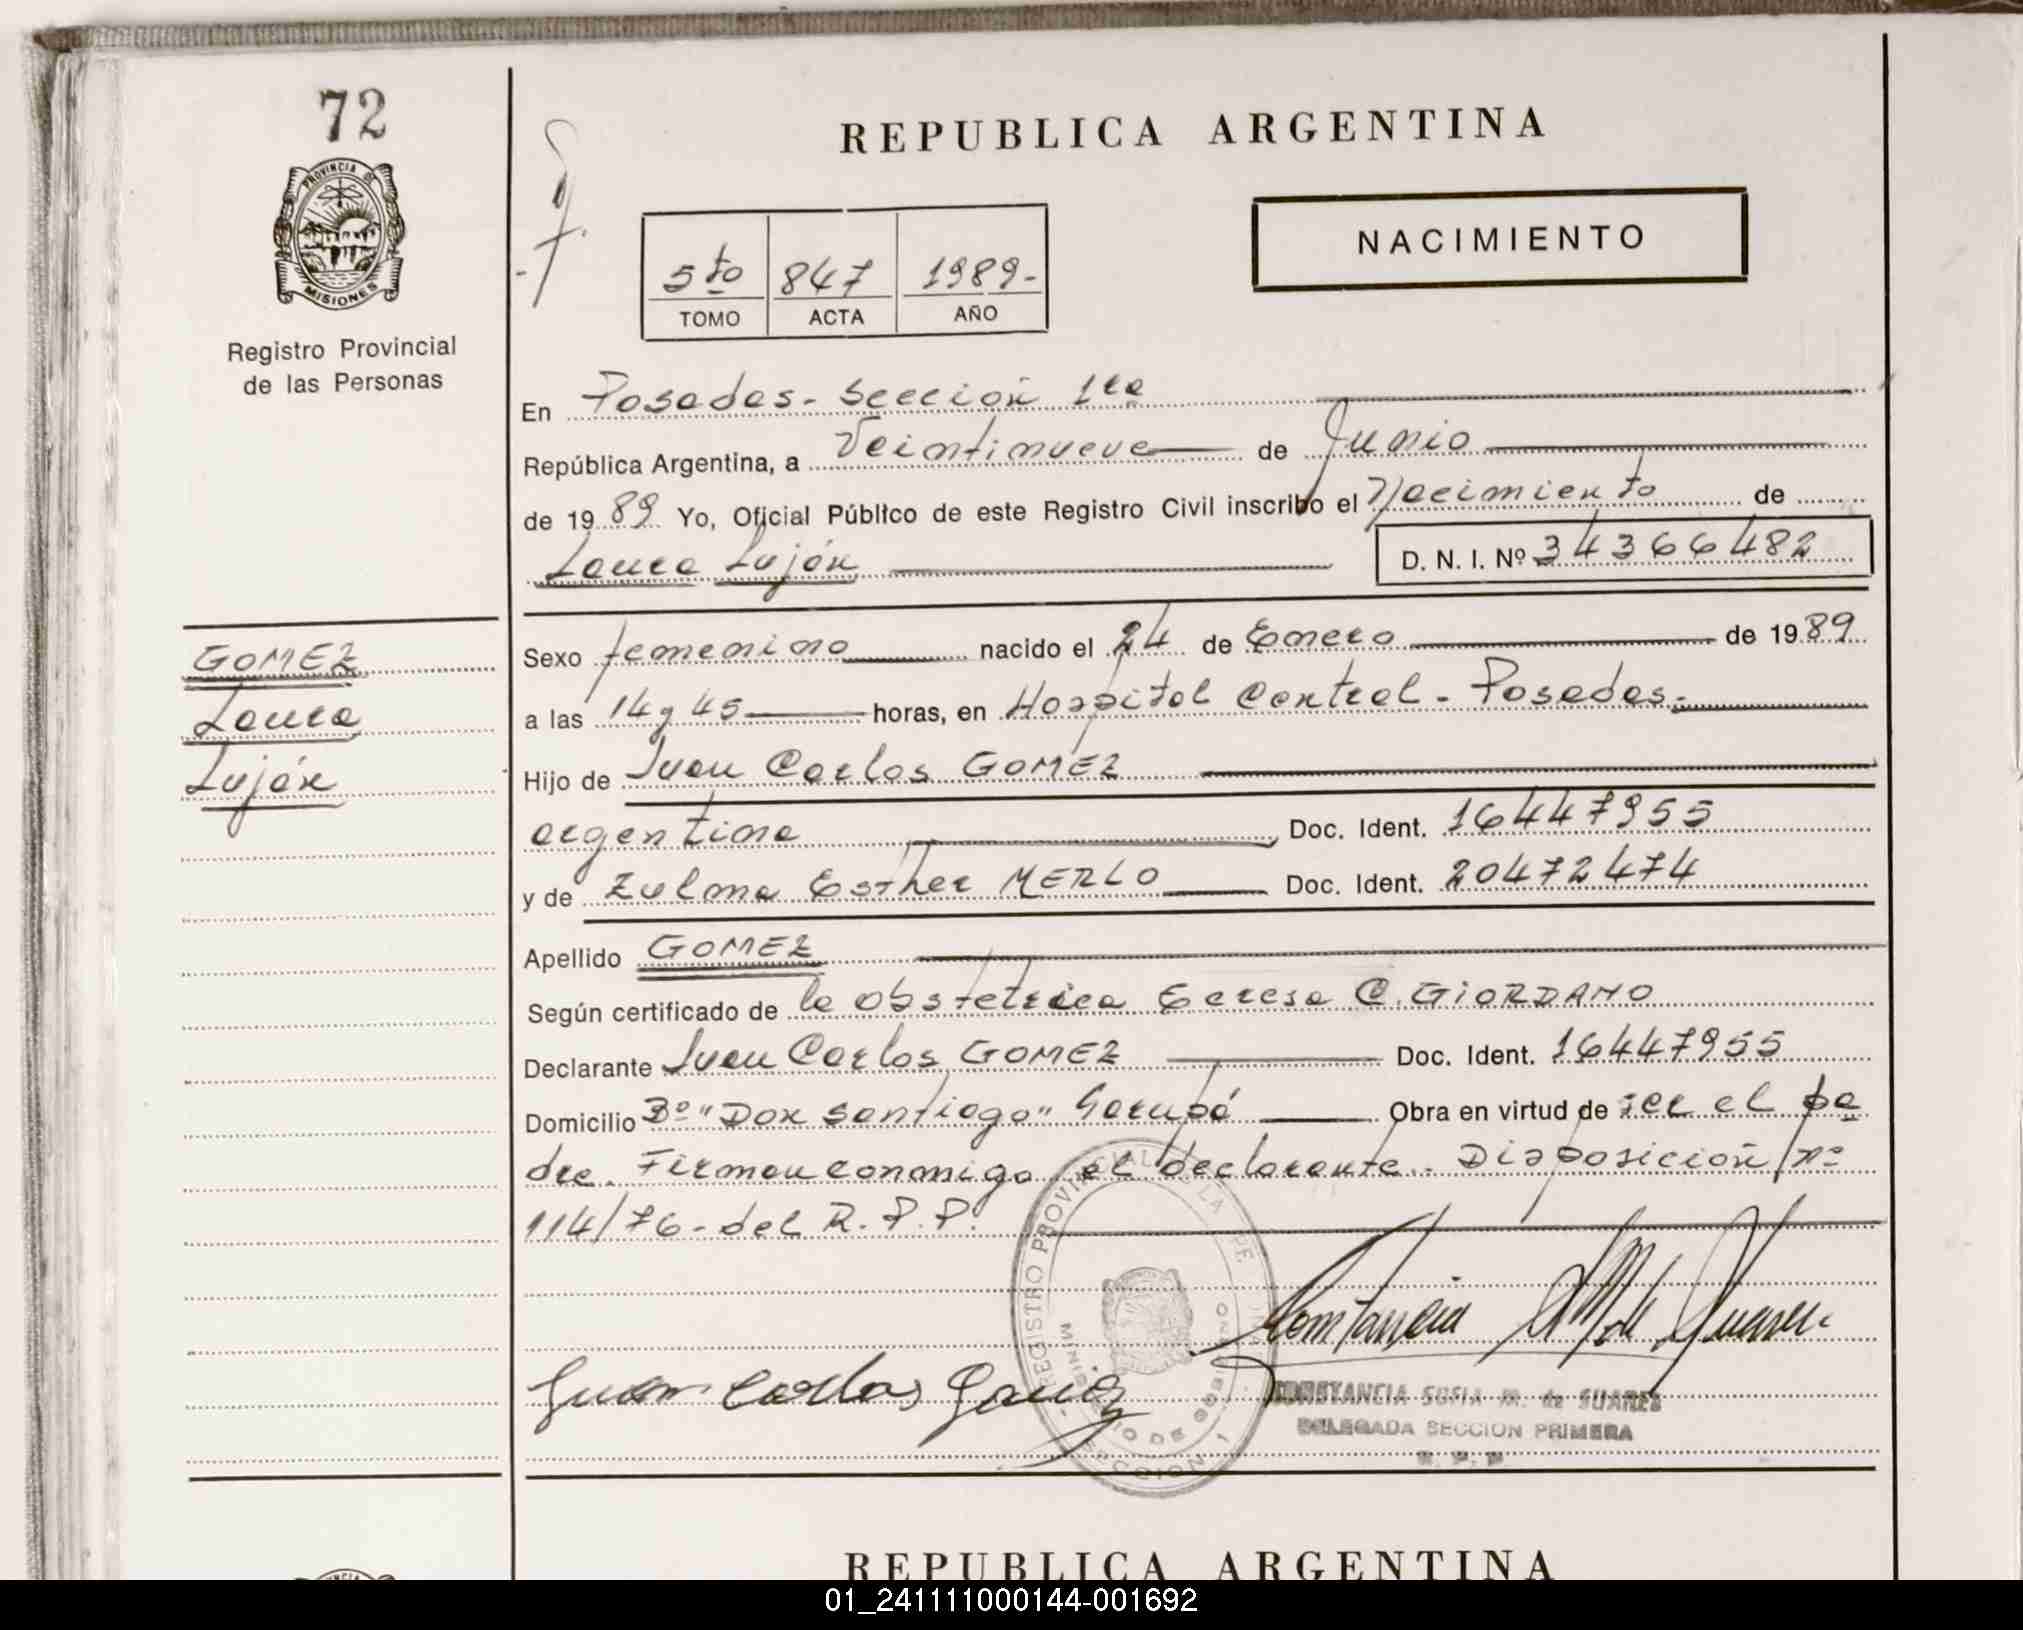 72
PROVINCIA DE
MISIONES
Registro Provincial
de las Personas
REPUBLICA ARGENTINA
NACIMIENTO
5to 847 1989-
TOMO ACTA AÑO
En Posadas. Sección 1ra
República Argentina, a Veintinueve de Junio
de 1989 Yo, Oficial Público de este Registro Civil inscribo el Nacimiento de
Laura Luján D. N. I. Nº 34366482
GOMEZ
Laura
Luján
Sexo femenino nacido el 24 de Enero de 1989
a las 14 y 45 horas, en Hospital Central - Posadas.
Hijo de Juan Carlos GOMEZ
argentina Doc. Ident. 16447955
y de Zulma Esther MERLO Doc. Ident. 20472474
Apellido GOMEZ
Según certificado de la obstetrica Teresa C. GIORDANO
Declarante Juan Carlos GOMEZ Doc. Ident. 16447955
Domicilio Bº "Don Santiago" Garupá Obra en virtud de ser el pa
dre. Firman conmigo el declarante. Disposición nº
114/76 - del R. P. P.
REGISTRO PROVINCIAL DE LA
MINISTERIO DE GOBIERNO
SECCION 1
Constancia M de Suares
Juan Carlos Gomez
CONSTANCIA SOFIA M. de SUARES
DELEGADA SECCION PRIMERA
R. P. P.
REPUBLICA ARGENTINA
01_241111000144-001692